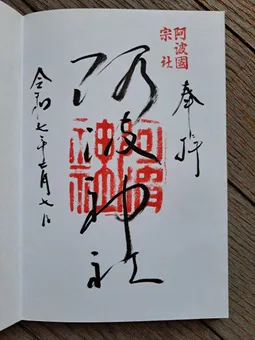 奉拝
阿波國
宗社
阿波神社
阿波神社
令和七年七月七日